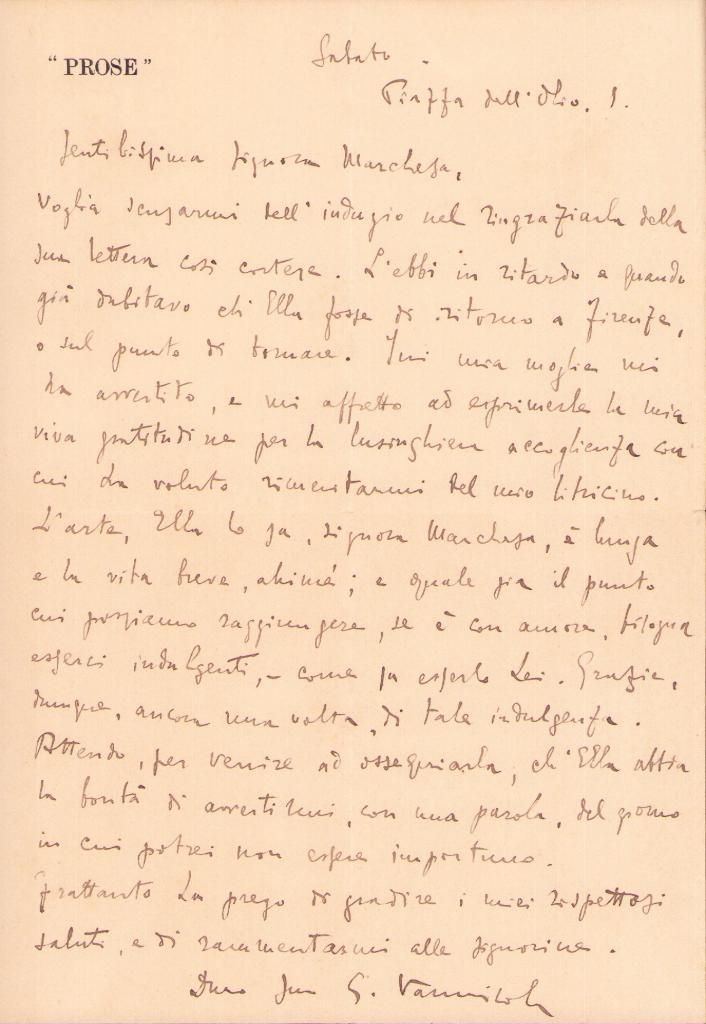 "PROSE"
Sabato.
Piazza dell'Olio. 1.
Gentilissima Signora Marchesa,
Voglia scusarmi dell'indugio nel ringraziarla della
sua lettera così cortese. L'ebbi in ritardo e quando
già dubitavo ch'Ella fosse di ritorno a Firenze,
o sul punto di tornare. Ieri mia moglie mi
ha avvertito, e mi affretto ad esprimerle la mia
viva gratitudine per la lusinghiera accoglienza con
cui ha voluto rimeritarmi del mio libricino.
L'arte, Ella lo sa, signora Marchesa, è lunga
e la vita breve, ahimé; e quale sia il punto
cui possiamo raggiungere, se è con amore, bisogna
esserci indulgenti, – come sa esserlo Lei. Grazie,
dunque, ancora una volta, di tale indulgenza.
Attendo, per venire ad ossequiarla, ch'Ella abbia
la bontà di avvertirmi, con una parola, del giorno
in cui potrei non essere importuno.
Frattanto La prego di gradire i miei rispettosi
saluti, e di rammentarmi alle signorine.
Suo G. Vannicola